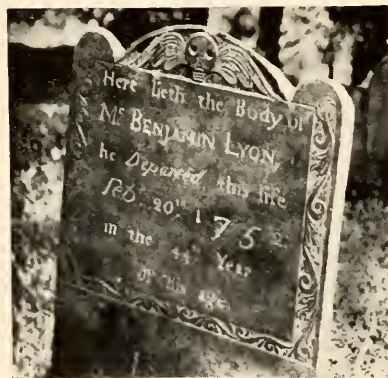 Here lieth the Body of
Mr BENJAMIN LYON,
he Departed this life
Feb 20th 1752
in the 44th Year
of his age.